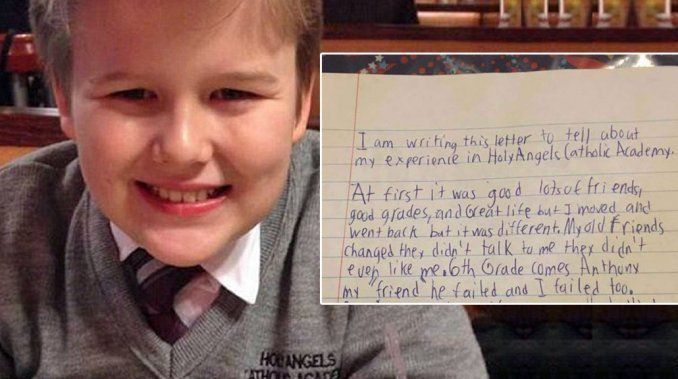 I am writing this letter to tell about
my experience in Holy Angels Catholic Academy.
At first it was good lots of friends,
good grades, and Great life but I moved and
went back but it was different. My old friends
changed they didn't talk to me they didn't
even like me. 6th Grade comes Anthony
my friend he failed and I failed too.
HOLY ANGELS
CATHOLIC ACADE